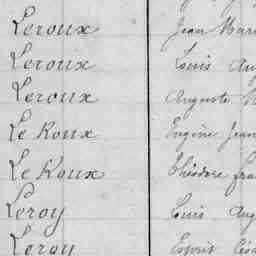 Leroux Jean Mari
Leroux Louis Aug
Leroux Auguste
Le Roux Eugène Jean
Le Roux Théodore Fra
Leroy Louis Aug
Leroy Esprit Cés